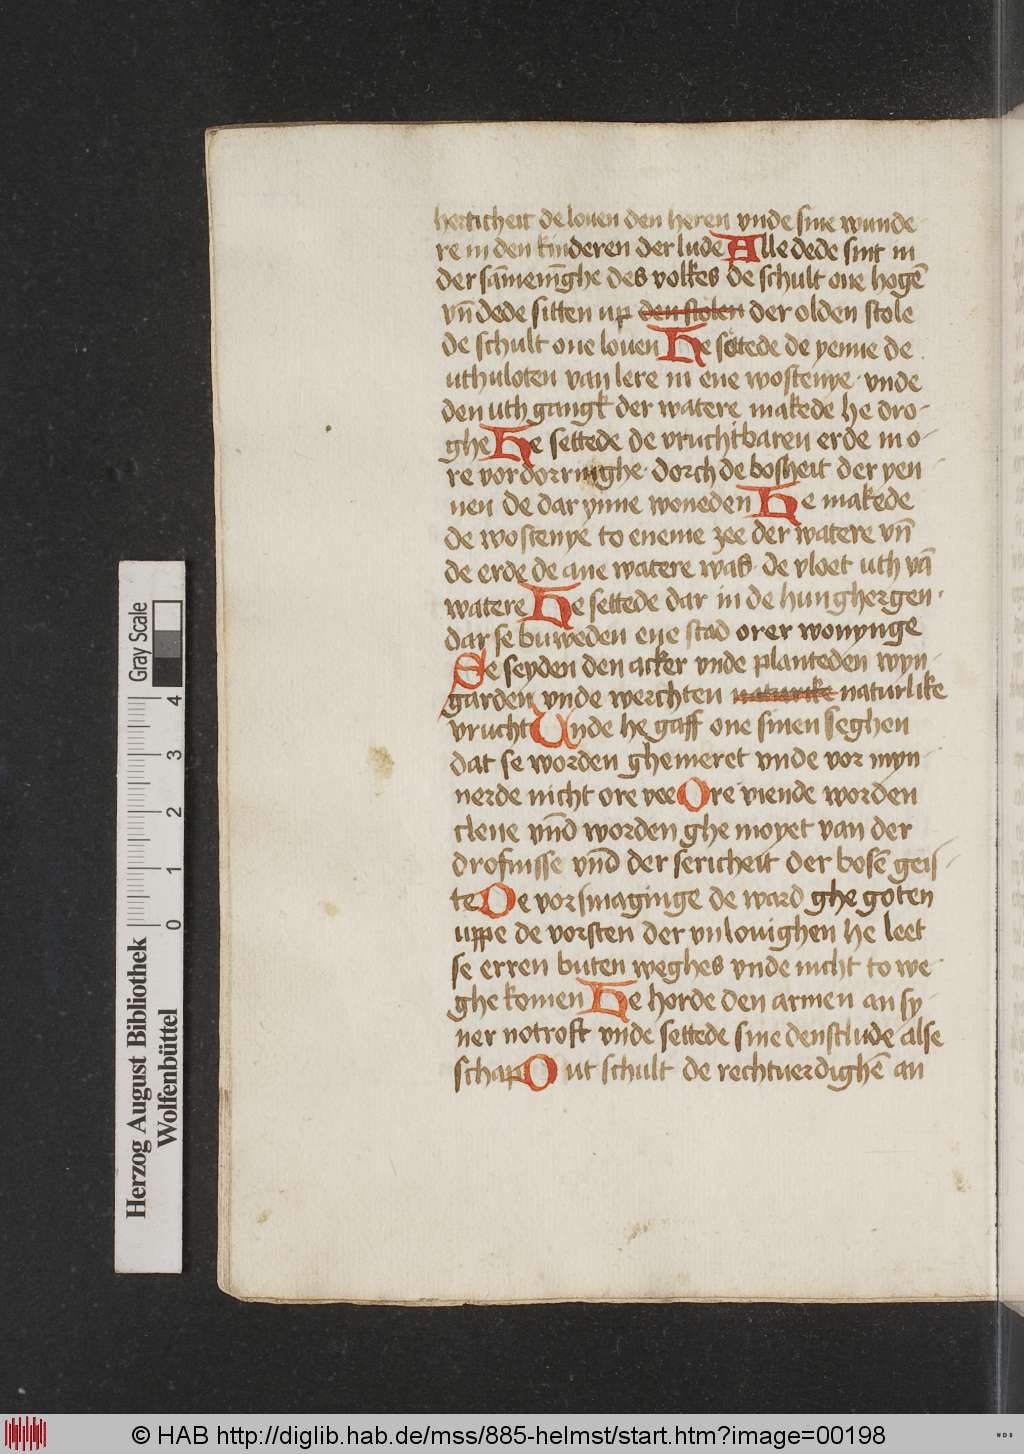 herticheit de louen den heren vnde sine wunde
re in den kinderen der lude Alle dede sint in
der sam̄enīghe des volkes de schult one hogē
vn̄ dede sitten up den stolen der olden stole
de schult one louen He settede de yenne de
uthuloten van lere in ene wostenye vnde
den uth gangk der watere makede he dro-
ghe He settede de vruchtbaren erde in o-
re vordorringhe dorch de bosheit der yen-
nen de dar ynne woneden He makede
de wostenye to eneme zee der watere vn̄
de erde de ane watere was de vloet uth vā
watere He settede dar in de hunghergen
dar se buweden ene stad orer wonynge
Se seyden den acker vnde planteden wyn-
garden vnde werchten naturike naturlike
vrucht Unde he gaff one sinen seghen
dat se worden ghemeret vnde vor myn-
nerde nicht ore vee Ore viende worden
clene vn̄d worden ghe moyet van der
drofnisse vn̄d der sericheit der bosē geis-
te De vorsmaginge de ward ghe goten
uppe de vorsten der vnlouighen he leet
se erren buten weghes vnde nicht to we-
ghe komen He horde den armen an sy-
ner notroft vnde settede sine denstlude alse
schap Dut schult de rechtuerdighē an
Herzog August Bibliothek
Wolfenbüttel
0 1 2 3 4
Gray Scale
© HAB http://diglib.hab.de/mss/885-helmst/start.htm?image=00198